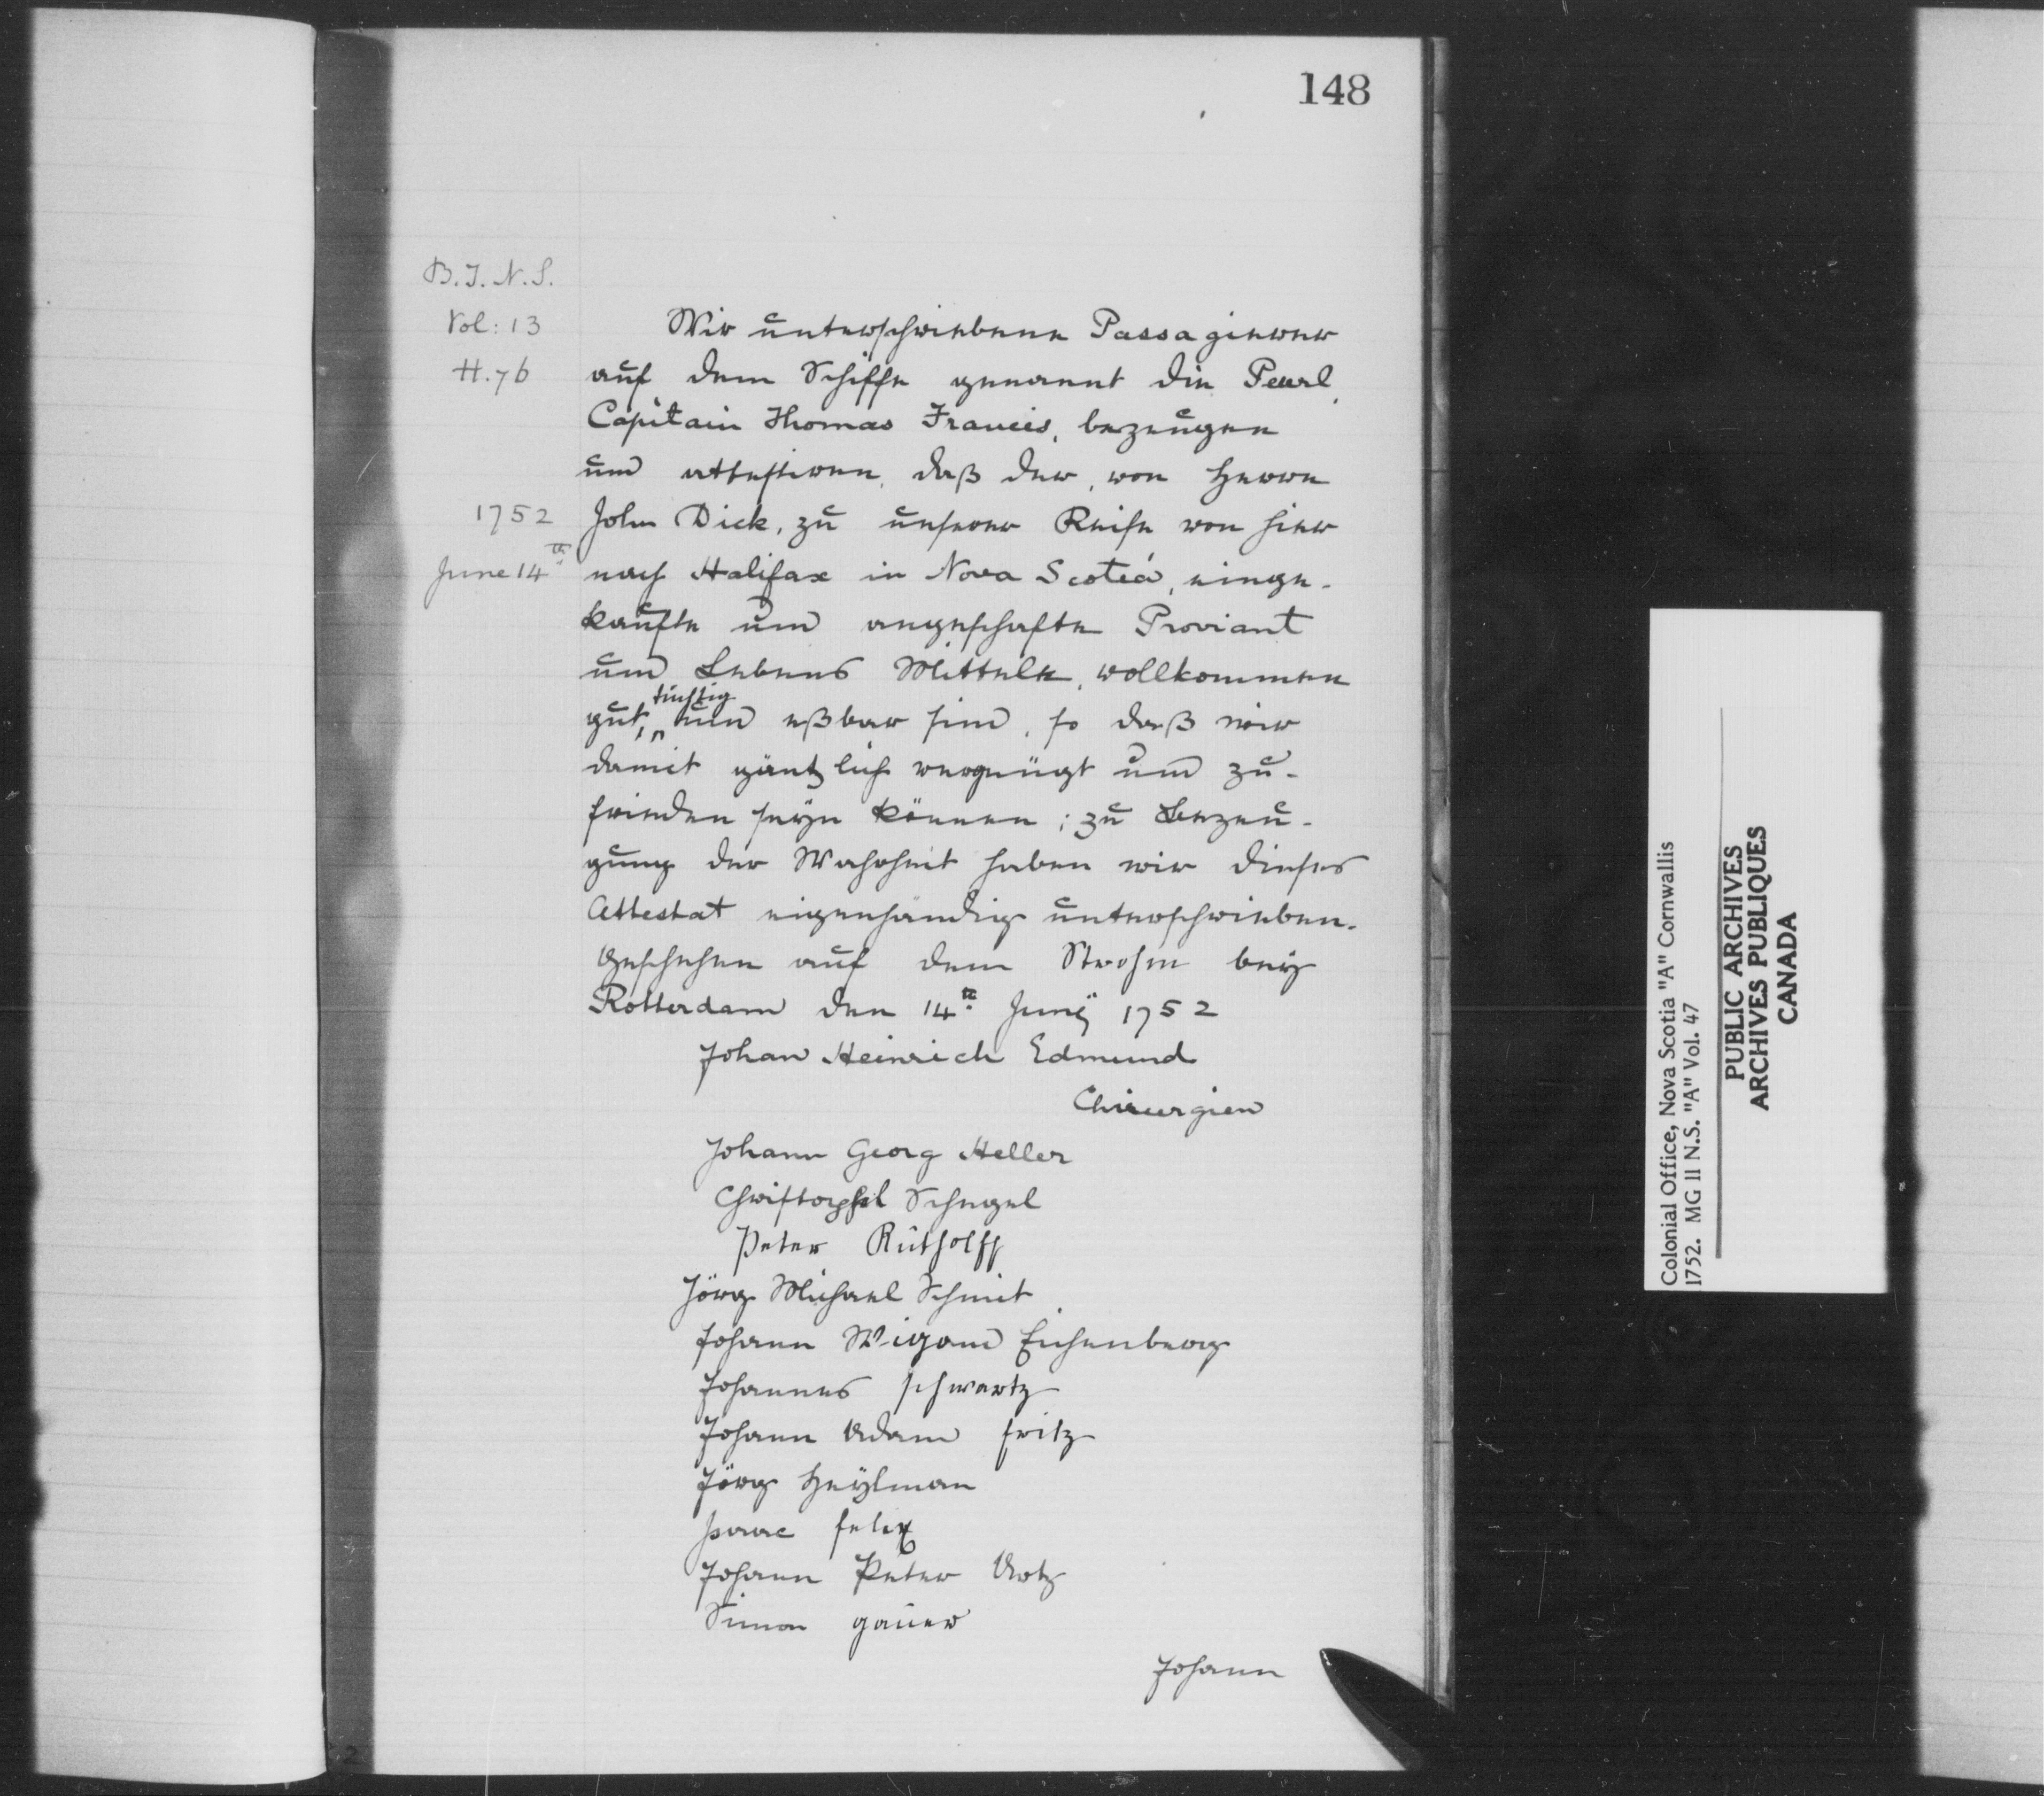 148
B.T.N.S.
Vol: 13
H.76
1752
June 14th
Wir unterschriebene Passagierer
auf dem Schiffe genannt die Pearl,
Capitain Thomas Francis, bezeugen
und attestiren, daß der, von Herrn
John Dick, zu unserer Reise von hier
nach Halifax in Nova Scotia, einge-
kaufte und angeschafte Proviant
und Lebens Mittele, vollkommen
gut, tüchtig und eßbar sind, so daß wir
damit gäntzlich vergnügt und zu-
frieden seÿn können; zu Bezeu-
gung der Wahrheit haben wir dieses
Attestat eigenhändig unterschrieben.
Geschehen auf dem Strohm beÿ
Rotterdam den 14te Junÿ 1752
Johan Heinrich Edmund
Chirurgien
Johann Georg Heller
Christophel Schegel
Peter Rutholff
Jörg Michael Schmit
Johann Wigand Eichenberg
Johannes schwartz
Johann Adam fritz
Jörg Heÿlman
Isaac felix
Johann Peter Artz
Simon gauer
Johann
Colonial Office, Nova Scotia "A" Cornwallis
1752. MG II N.S. "A" Vol. 47
PUBLIC ARCHIVES
ARCHIVES PUBLIQUES
CANADA